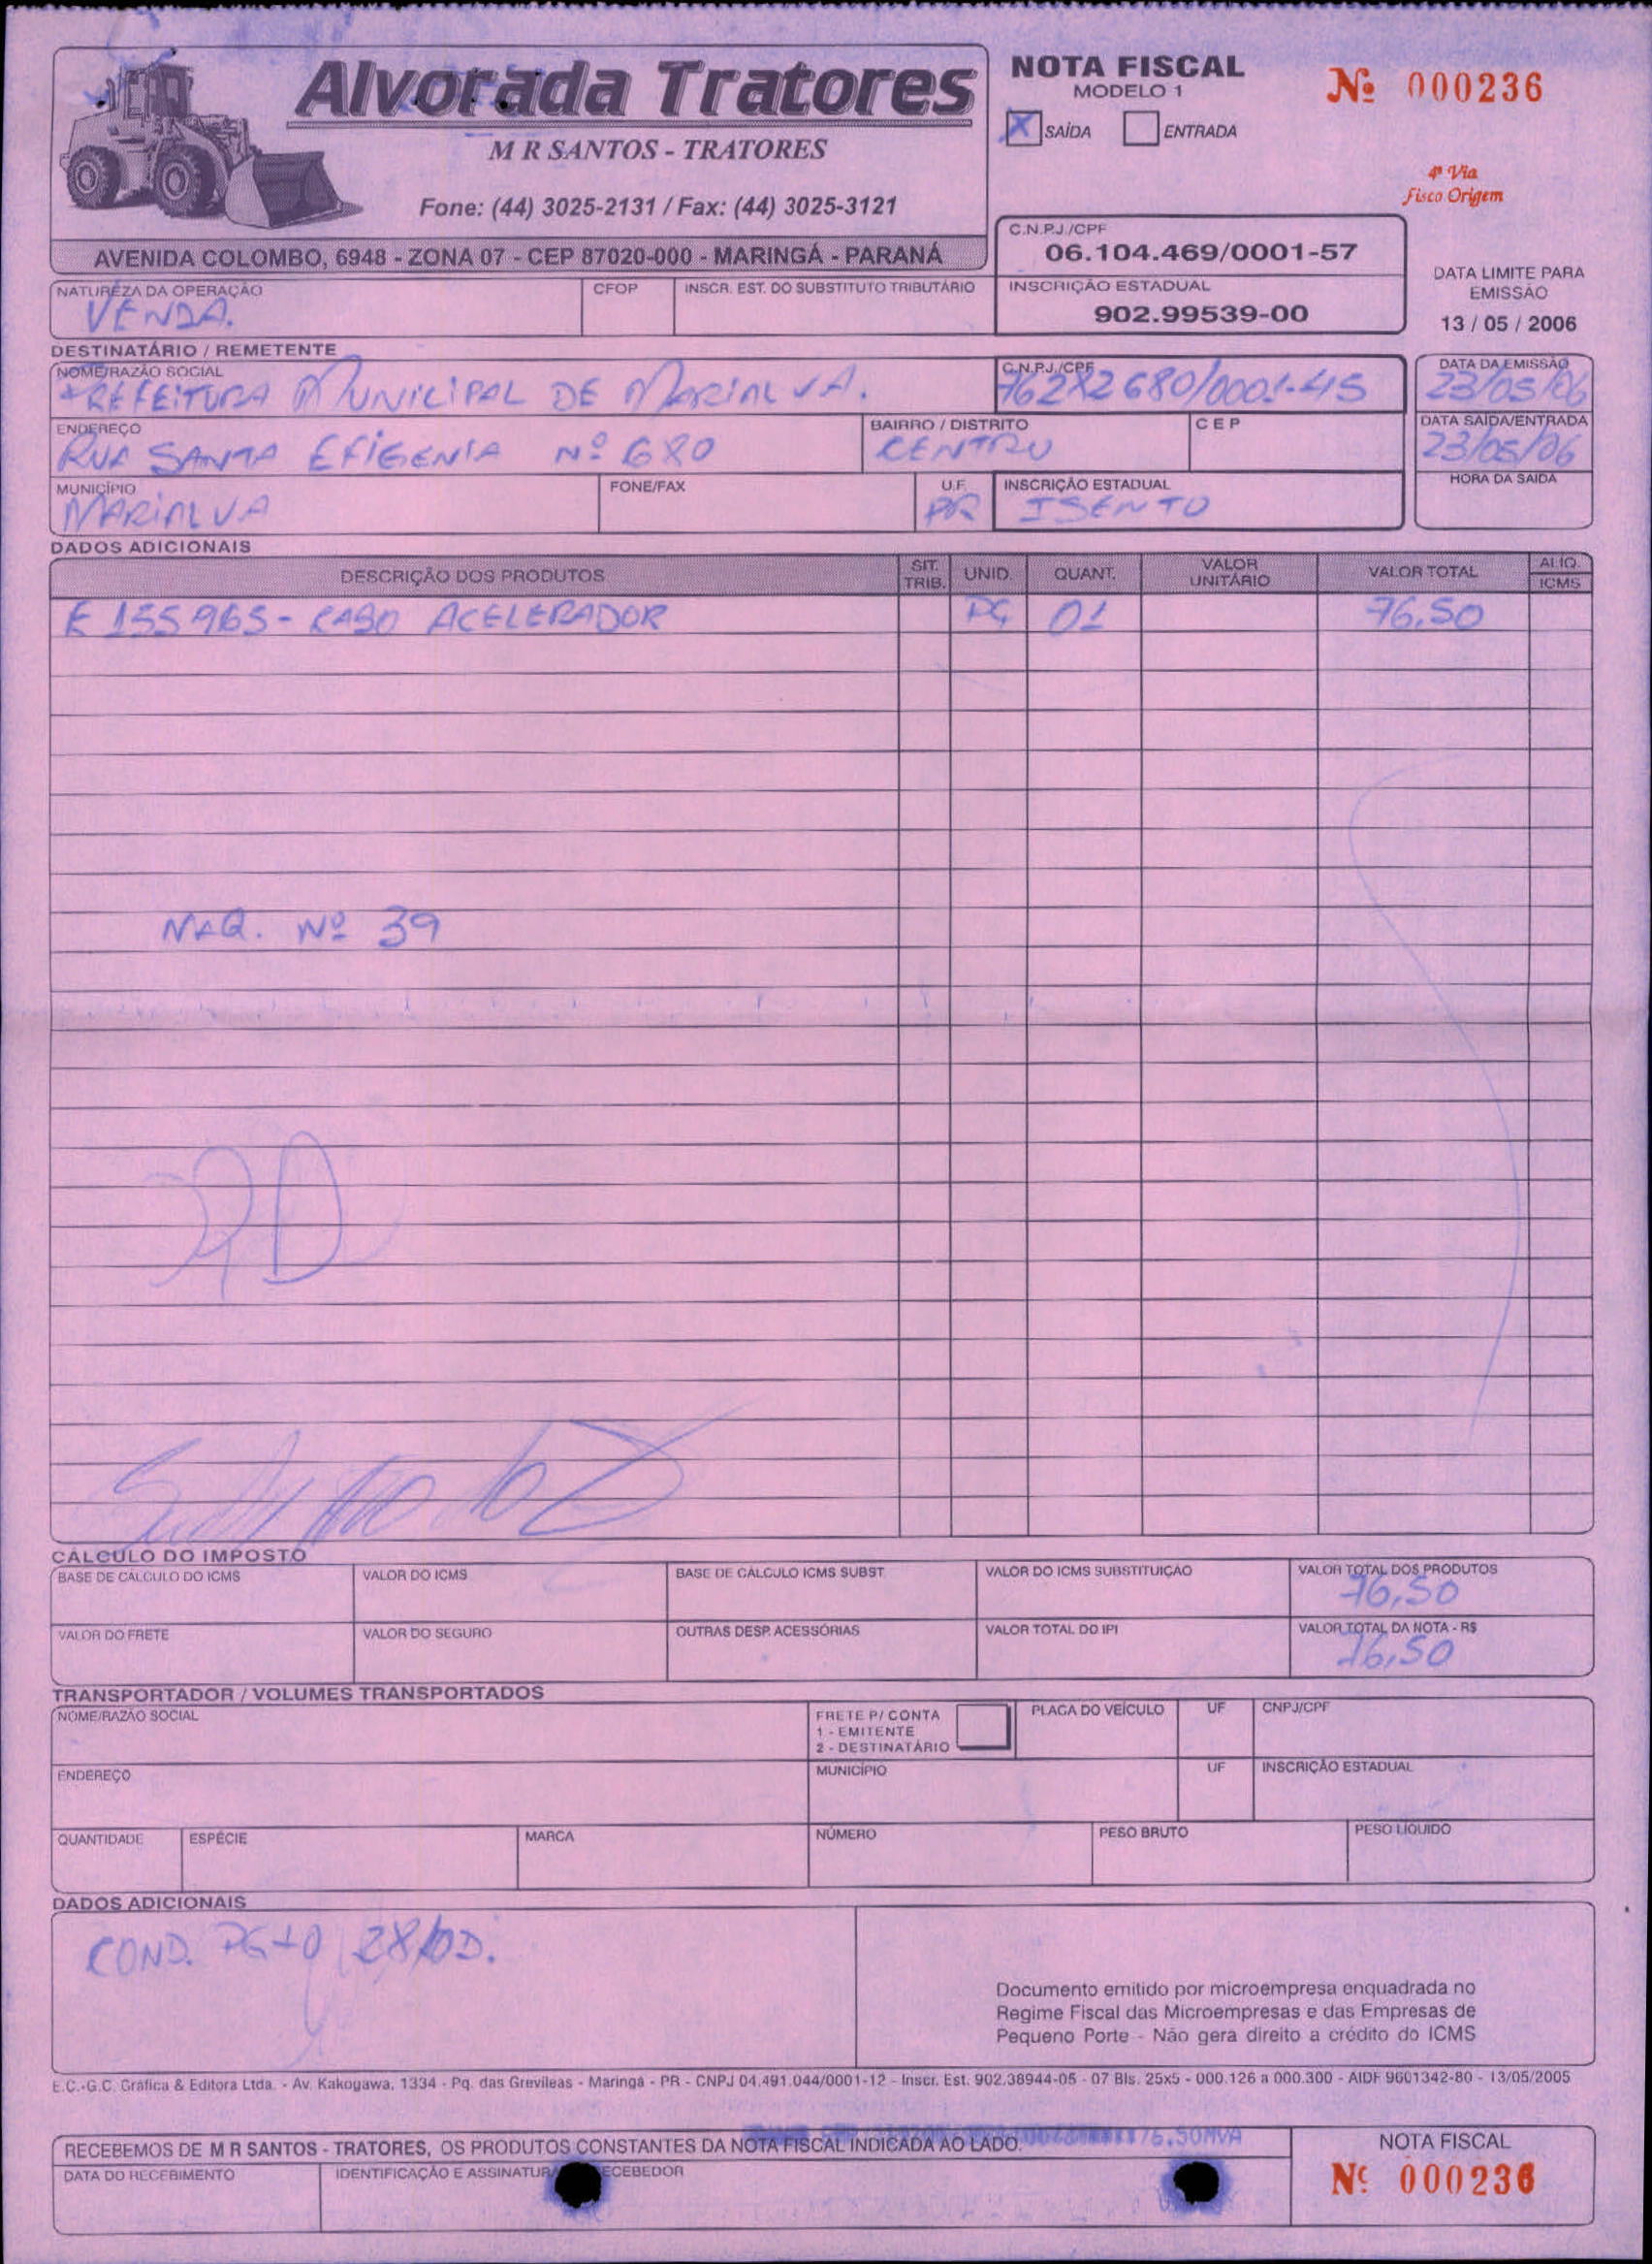 Alvorada Tratores
M R SANTOS - TRATORES
Fone: (44) 3025-2131 / Fax: (44) 3025-3121
AVENIDA COLOMBO, 6948 - ZONA 07 - CEP 87020-000 - MARINGÁ - PARANÁ
NOTA FISCAL
MODELO 1
X SAÍDA ENTRADA
Nº 000236
4ª Via
Fisco Origem
C.N.P.J./CPF
06.104.469/0001-57
INSCRIÇÃO ESTADUAL
902.99539-00
DATA LIMITE PARA
EMISSÃO
13 / 05 / 2006
NATUREZA DA OPERAÇÃO CFOP INSCR. EST. DO SUBSTITUTO TRIBUTÁRIO
VENDA.
DESTINATÁRIO / REMETENTE
NOME/RAZÃO SOCIAL C.N.P.J./CPF DATA DA EMISSÃO
PREFEITURA MUNICIPAL DE MARIALVA. 76282680/0001-45 23/05/06
ENDEREÇO BAIRRO / DISTRITO CEP DATA SAÍDA/ENTRADA
RUA SANTA EFIGENIA Nº 680 CENTRO 23/05/06
MUNICÍPIO FONE/FAX U.F. INSCRIÇÃO ESTADUAL HORA DA SAÍDA
MARIALVA PR ISENTO
DADOS ADICIONAIS
DESCRIÇÃO DOS PRODUTOS SIT. TRIB. UNID. QUANT. VALOR UNITÁRIO VALOR TOTAL ALIQ. ICMS
E 155965 - CABO ACELERADOR PÇ 01 76,50
MAQ. Nº 39
CÁLCULO DO IMPOSTO
BASE DE CÁLCULO DO ICMS VALOR DO ICMS BASE DE CÁLCULO ICMS SUBST. VALOR DO ICMS SUBSTITUIÇÃO VALOR TOTAL DOS PRODUTOS
76,50
VALOR DO FRETE VALOR DO SEGURO OUTRAS DESP. ACESSÓRIAS VALOR TOTAL DO IPI VALOR TOTAL DA NOTA - R$
76,50
TRANSPORTADOR / VOLUMES TRANSPORTADOS
NOME/RAZÃO SOCIAL FRETE P/ CONTA PLACA DO VEÍCULO UF CNPJ/CPF
1 - EMITENTE
2 - DESTINATÁRIO
ENDEREÇO MUNICÍPIO UF INSCRIÇÃO ESTADUAL
QUANTIDADE ESPÉCIE MARCA NÚMERO PESO BRUTO PESO LÍQUIDO
DADOS ADICIONAIS
COND. PGTO 28/DD.
Documento emitido por microempresa enquadrada no
Regime Fiscal das Microempresas e das Empresas de
Pequeno Porte - Não gera direito a crédito do ICMS
E.C.-G.C. Gráfica & Editora Ltda. - Av. Kakogawa, 1334 - Pq. das Grevíleas - Maringá - PR - CNPJ 04.491.044/0001-12 - Inscr. Est. 902.38944-05 - 07 Bls. 25x5 - 000.126 a 000.300 - AIDF 9601342-80 - 13/05/2005
76,50MVA
RECEBEMOS DE M R SANTOS - TRATORES, OS PRODUTOS CONSTANTES DA NOTA FISCAL INDICADA AO LADO.
DATA DO RECEBIMENTO IDENTIFICAÇÃO E ASSINATURA RECEBEDOR
NOTA FISCAL
Nº 000236